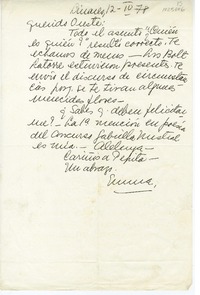 Linares, 12-IV-78
Querido Oreste:
Todo el asunto "Quién
es quién" resultó correcto. Te
echamos de menos - Los Bolt
Latorre estuvieron presentes. Te
envío el discurso de circunstan
cias pues se te tiran algunas
merecidas flores -
¿Sabes q. deben felicitar
me? - La 1ª mención en poesía
del Concurso Gabriela Mistral
es mía. - Aleluya -
Cariños a Pepita -
Un abrazo
Emma,